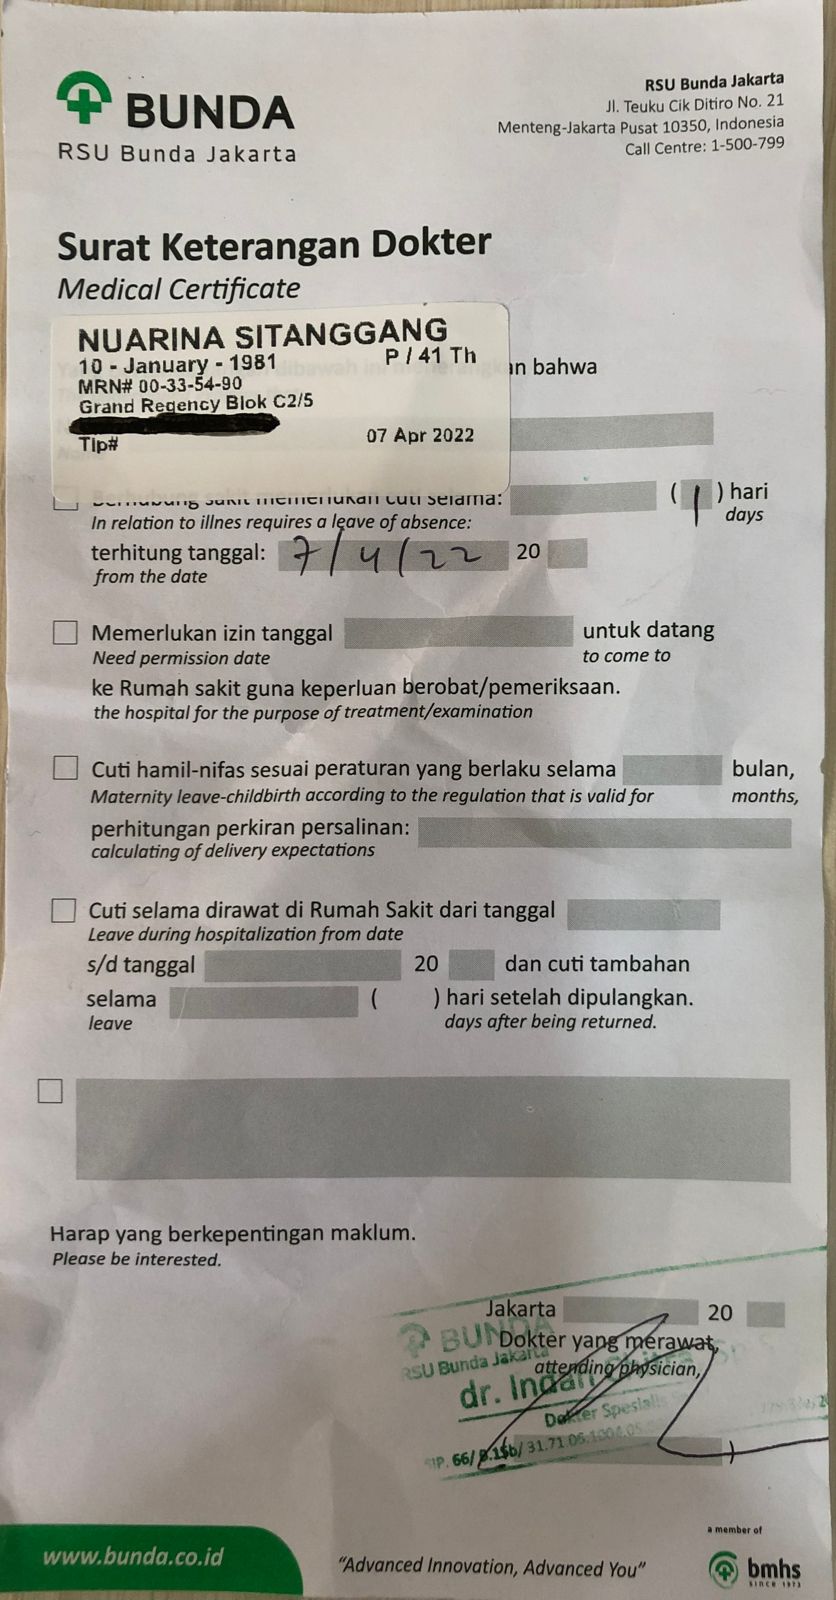 BUNDA
RSU Bunda Jakarta
RSU Bunda Jakarta
Jl. Teuku Cik Ditiro No. 21
Menteng-Jakarta Pusat 10350, Indonesia
Call Centre: 1-500-799
Surat Keterangan Dokter
Medical Certificate
NUARINA SITANGGANG
10 - January - 1981 P / 41 Th
MRN# 00-33-54-90
Grand Regency Blok C2/5
Tlp# 07 Apr 2022
an bahwa
Berhubung sakit memerlukan cuti selama: (1) hari
In relation to illnes requires a leave of absence: days
terhitung tanggal: 7/4/22 20
from the date
Memerlukan izin tanggal untuk datang
Need permission date to come to
ke Rumah sakit guna keperluan berobat/pemeriksaan.
the hospital for the purpose of treatment/examination
Cuti hamil-nifas sesuai peraturan yang berlaku selama bulan,
Maternity leave-childbirth according to the regulation that is valid for months,
perhitungan perkiran persalinan:
calculating of delivery expectations
Cuti selama dirawat di Rumah Sakit dari tanggal
Leave during hospitalization from date
s/d tanggal 20 dan cuti tambahan
selama ( ) hari setelah dipulangkan.
leave days after being returned.
Harap yang berkepentingan maklum.
Please be interested.
Jakarta 20
BUNDA
Dokter yang merawat,
RSU Bunda Jakarta
attending physician,
dr. Indah
Dokter Spesialis
SIP. 66/
)
www.bunda.co.id
"Advanced Innovation, Advanced You"
a member of
bmhs
SINCE 1973